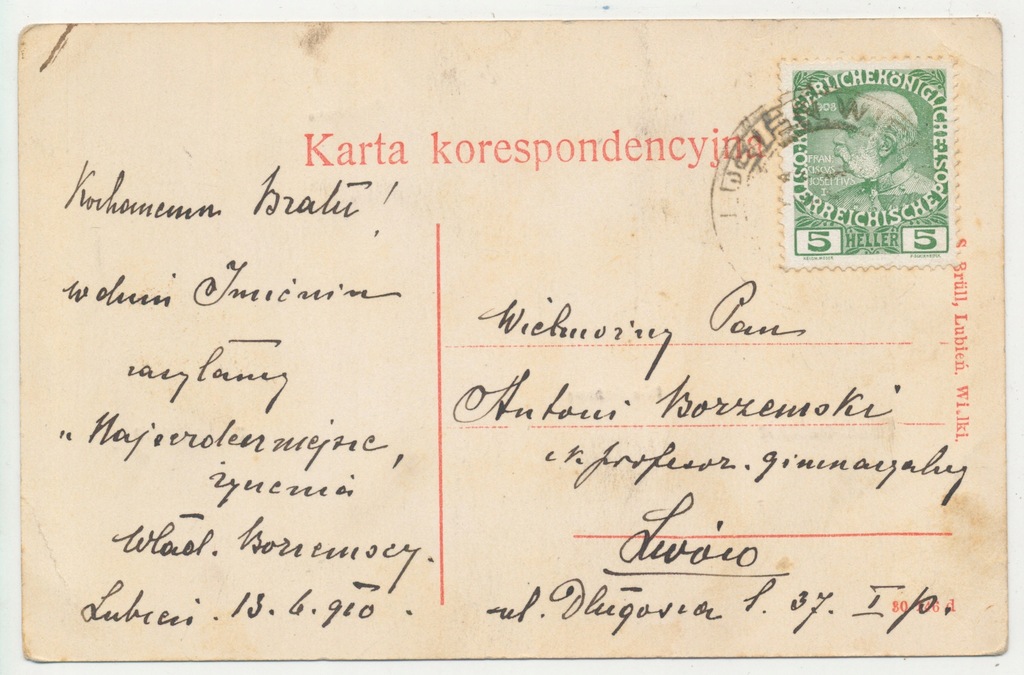 Karta korespondencyjna
Kochanemu Bratu!
w dniu Imienin
zasyłamy
"Najserdeczniejsze,
życzenia
Wład. Borzemscy.
Lubień. 13.6.910.
Wielmożny Pan
Antoni Borzemski
profesor. gimnazyalny
Lwów
ul. Długosza l. 37. I p.
KAISERLICHE KÖNIGLICHE POST
ÖSTERREICHISCHE
1908
FRAN
CISCVS
IOSEFVS I
5 HELLER 5
S. Brüll, Lubień. Wielki.